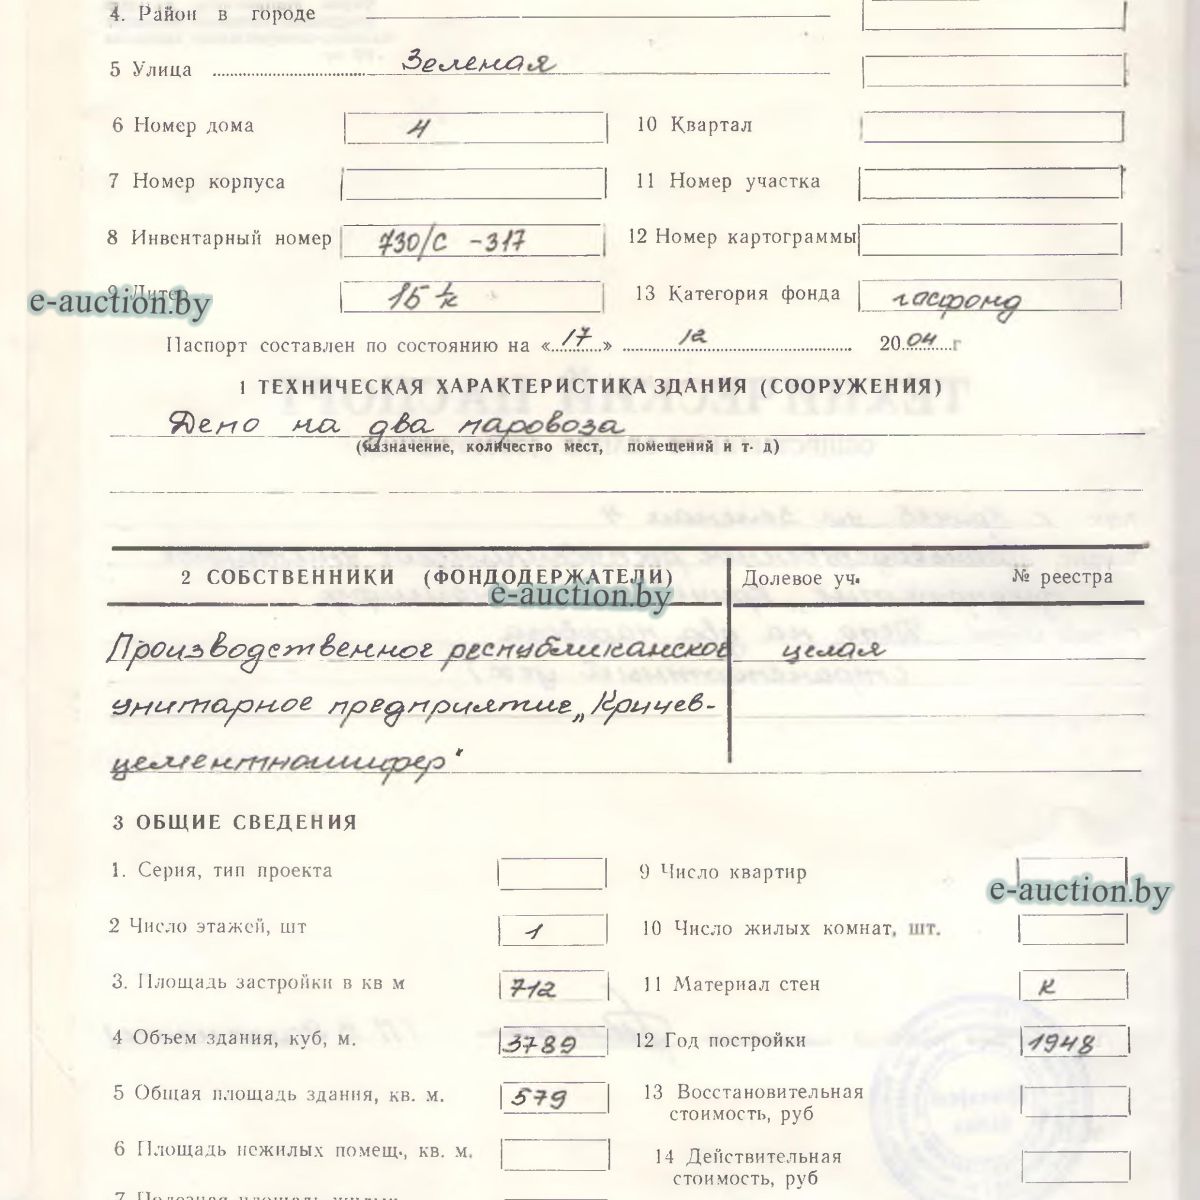 4. Район в городе
5 Улица Зеленая
6 Номер дома 4 10 Квартал
7 Номер корпуса 11 Номер участка
8 Инвентарный номер 730/С -317 12 Номер картограммы
9 Литер 15 1/к 13 Категория фонда госфонд
e-auction.by
Паспорт составлен по состоянию на «17» 12 2004 г
1 ТЕХНИЧЕСКАЯ ХАРАКТЕРИСТИКА ЗДАНИЯ (СООРУЖЕНИЯ)
Депо на два паровоза
(назначение, количество мест, помещений и т. д)
2 СОБСТВЕННИКИ (ФОНДОДЕРЖАТЕЛИ) Долевое уч. № реестра
e-auction.by
Производственное республиканское целая
унитарное предприятие „Кричев-
цементношифер"
3 ОБЩИЕ СВЕДЕНИЯ
1. Серия, тип проекта 9 Число квартир
e-auction.by
2 Число этажей, шт 1 10 Число жилых комнат, шт.
3. Площадь застройки в кв м 712 11 Материал стен К
4 Объем здания, куб, м. 3789 12 Год постройки 1948
5 Общая площадь здания, кв. м. 579 13 Восстановительная
стоимость, руб
6 Площадь нежилых помещ., кв. м. 14 Действительная
стоимость, руб